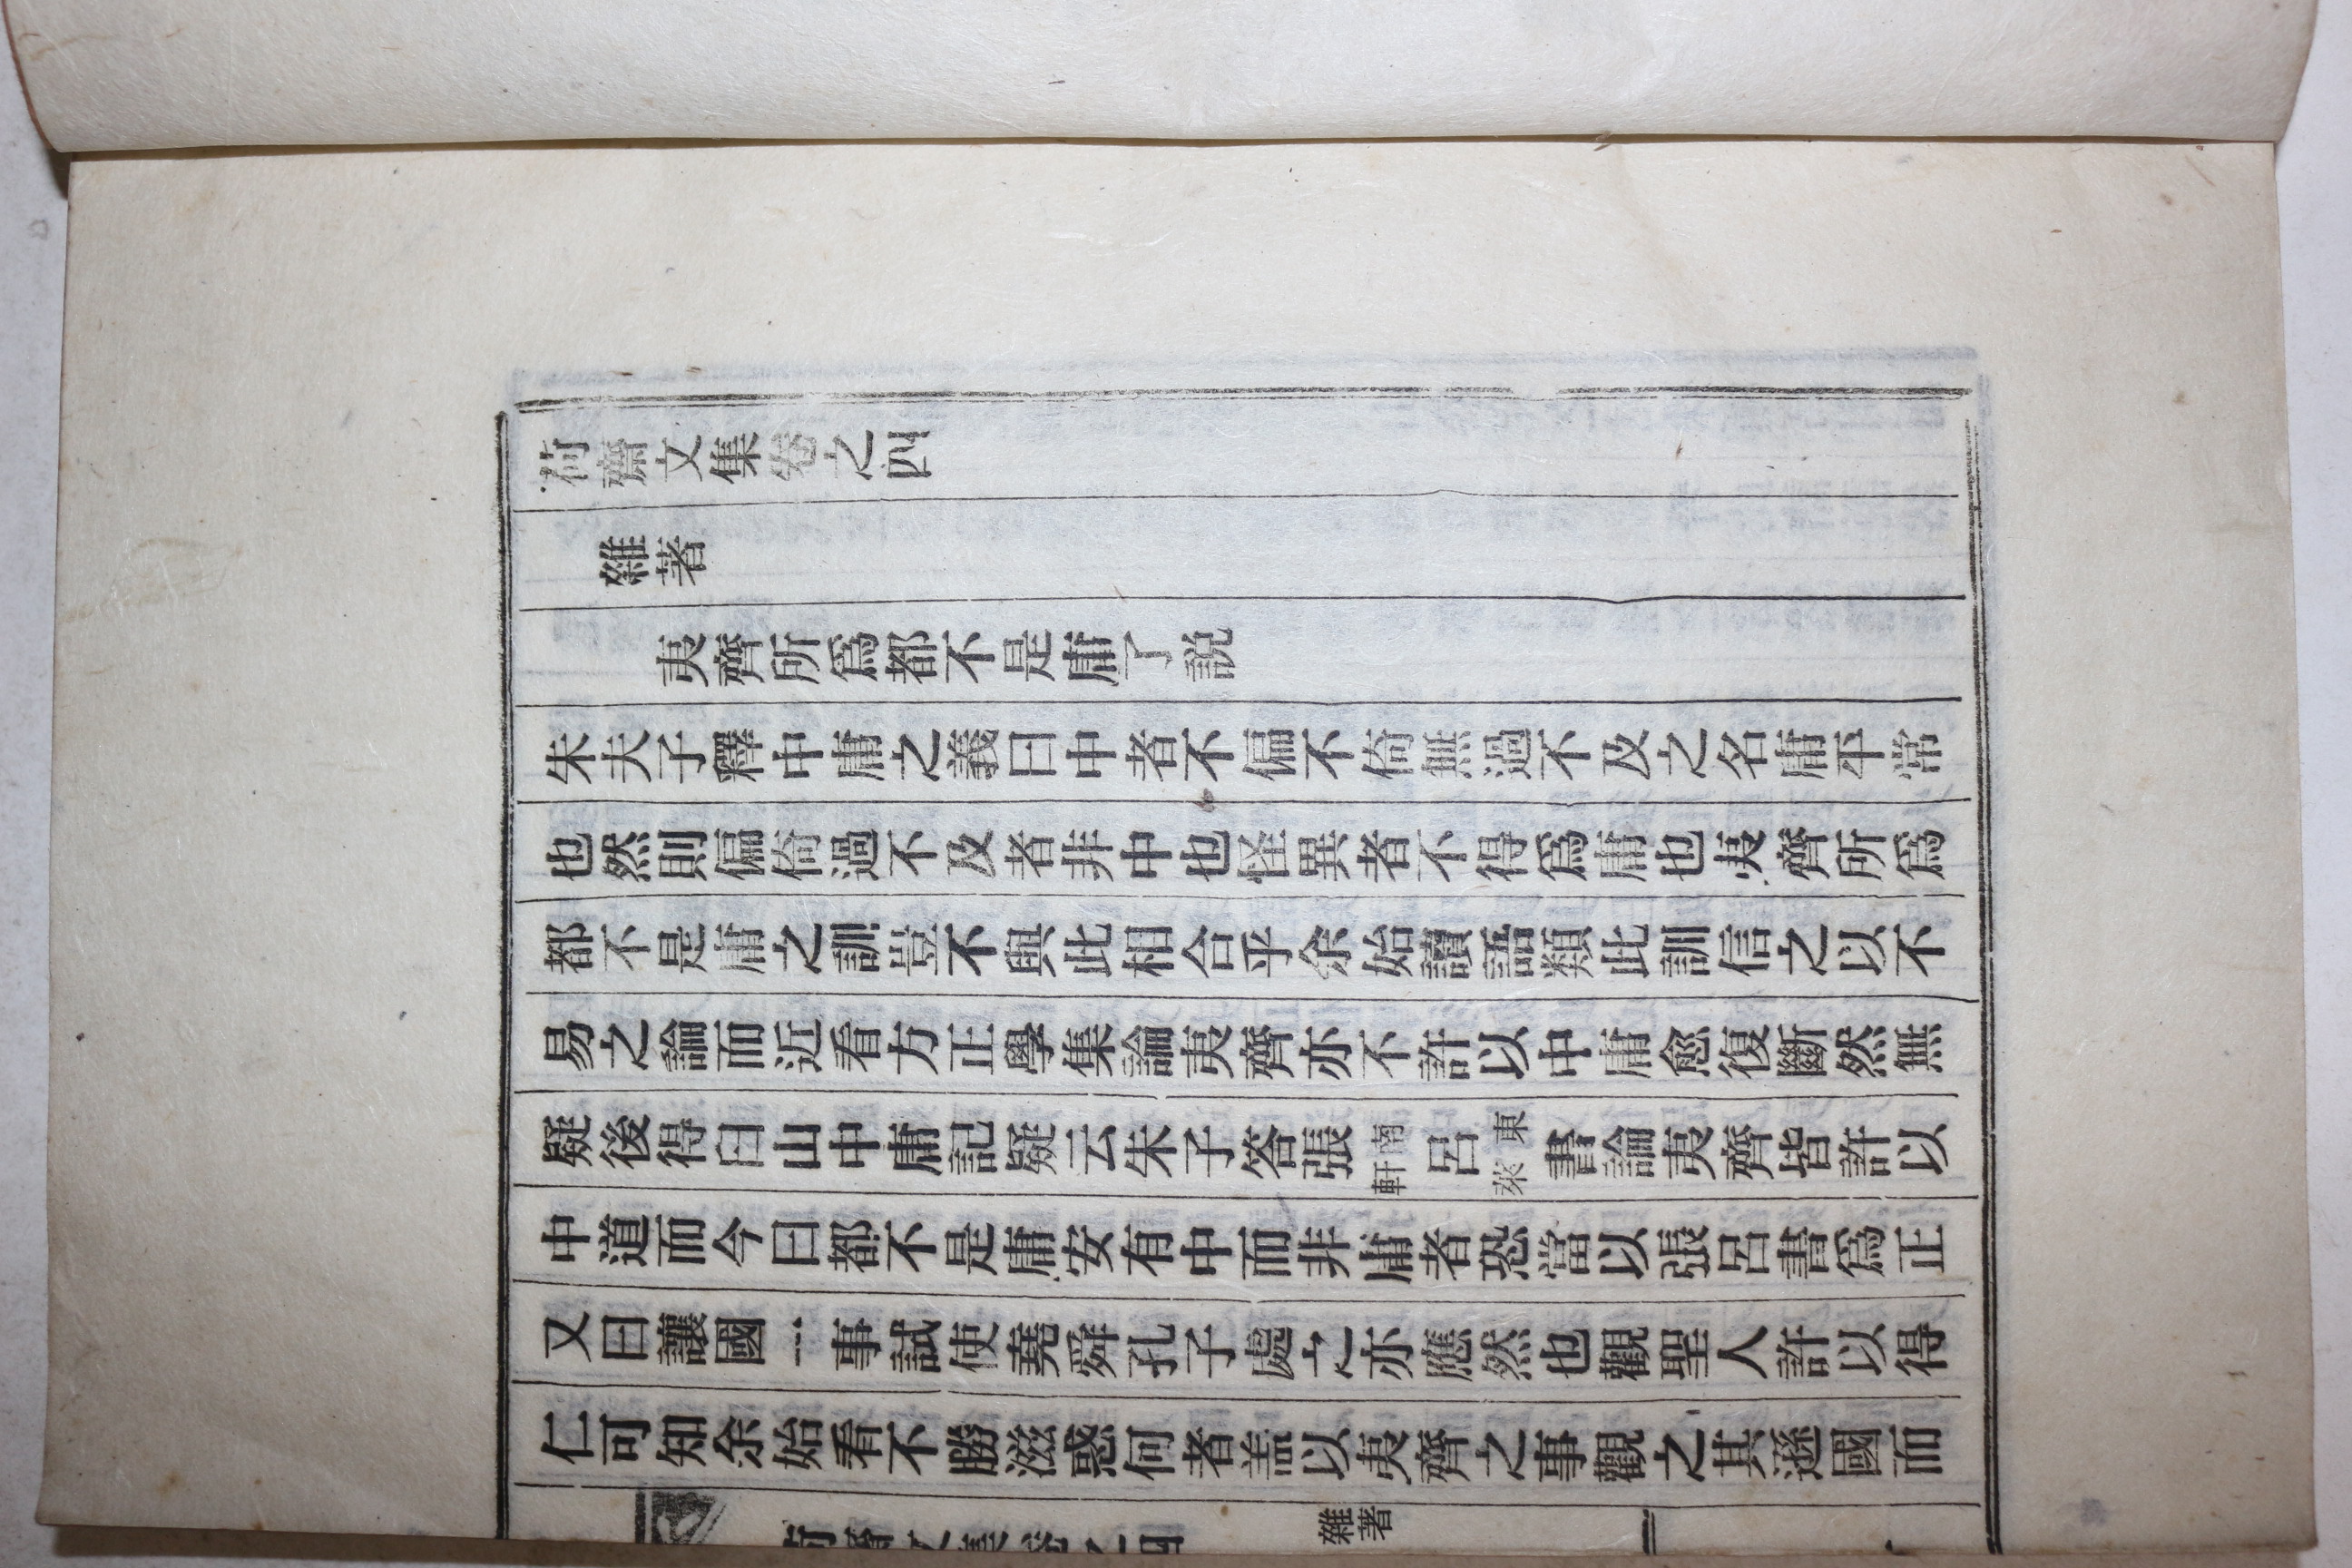 荷齋文集卷之四
雜著
夷齊所爲都不是庸了說
朱夫子釋中庸之義曰中者不偏不倚無過不及之名庸平常
也然則偏倚過不及者非中也怪異者不得爲庸也夷齊所爲
都不是庸之訓豈不與此相合乎余始讀語類此訓信之以不
易之論而近看方正學集論夷齊亦不許以中庸愈復斷然無
疑後得臼山中庸記疑云朱子答張南軒呂東萊書論夷齊皆許以
中道而今曰都不是庸安有中而非庸者恐當以張呂書爲正
又曰讓國一事試使堯舜孔子處之亦應然也觀聖人許以得
仁可知余始看不勝滋惑何者盖以夷齊之事觀之其遜國而
荷齋文集卷之四 雜著